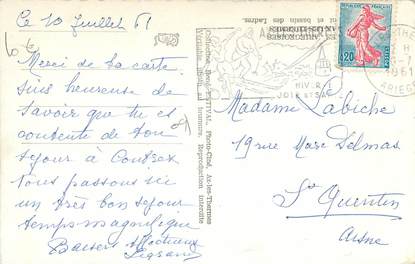 Ce 10 Juillet 61
Merci de ta carte
suis heureuse de
savoir que tu es
contente de ton
séjour à Contrex
nous passons ici
un très bon séjour
temps magnifique
Baisers affectueux
Collection "Bos" FESTIVAL, Photo-Ciné, Ax-les-Thermes
Véritable Photo au bromure. Reproduction interdite
et bassin des Ladres
HIVER
JOIE
0,20
POSTES
1961
ARIEGE
Madame Labiche
19 rue Marx Delmas
St Quentin
Aisne